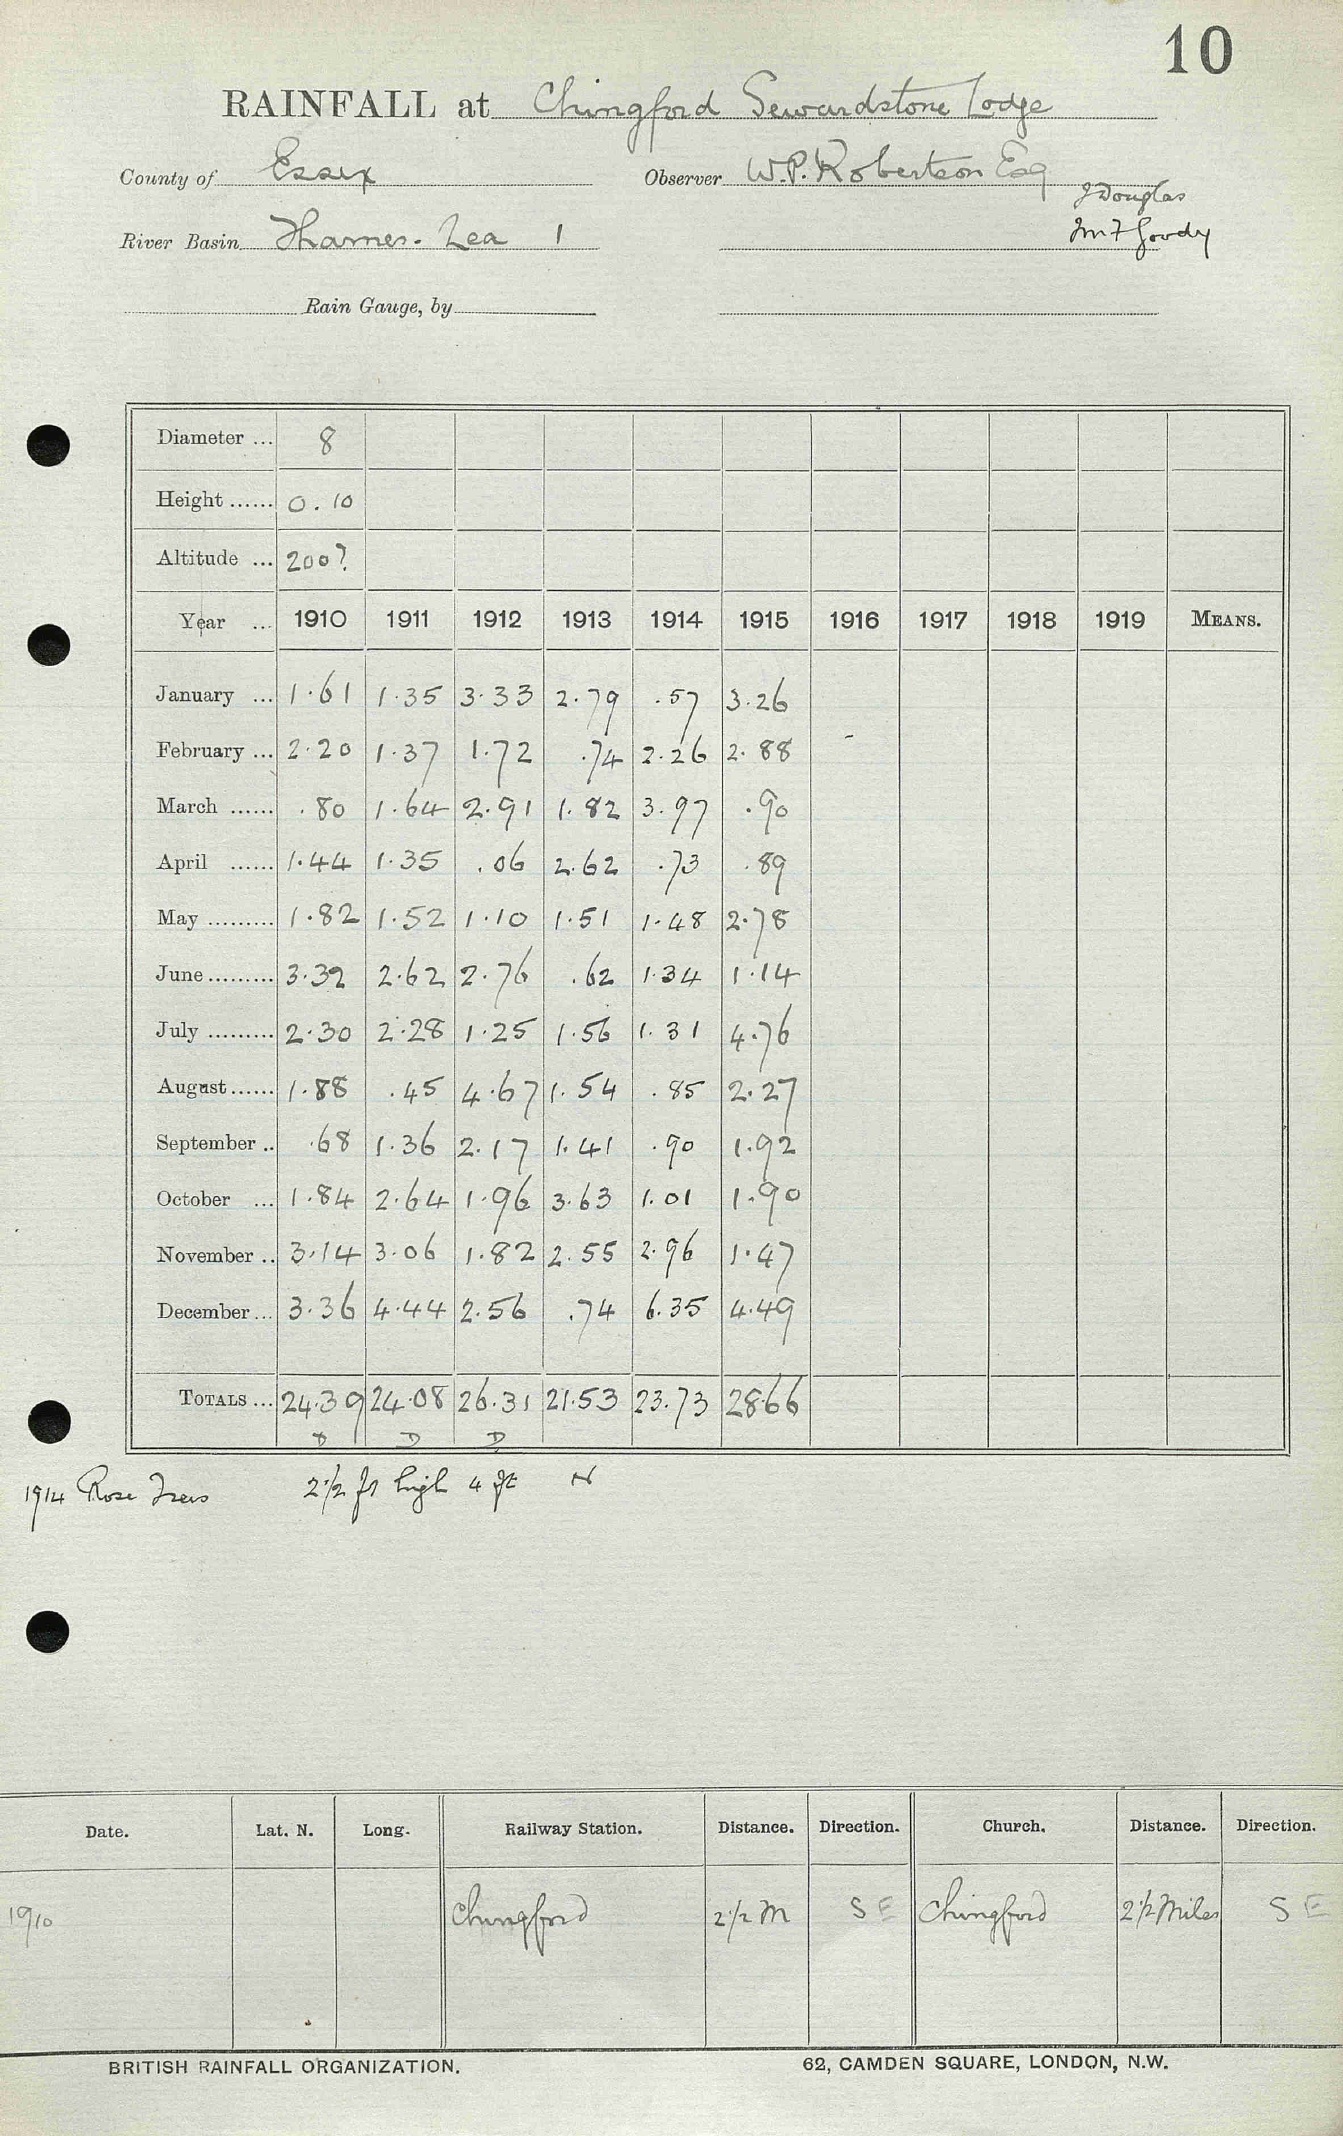 10
RAINFALL at Chingford Sewardstone Lodge
County of Essex Observer W.P. Robertson Esq
J Douglas
River Basin Thames. Lea 1
Rain Gauge, by
Diameter ... 8
Height ...... 0.10
Altitude ... 200?
Year ... 1910 1911 1912 1913 1914 1915 1916 1917 1918 1919 MEANS.
January ... 1.61 1.35 3.33 2.79 .57 3.26
February ... 2.20 1.37 1.72 .74 2.26 2.88
March ...... .80 1.64 2.91 1.82 3.97 .90
April ...... 1.44 1.35 .06 2.62 .73 .89
May ......... 1.82 1.52 1.10 1.51 1.48 2.78
June ......... 3.32 2.62 2.76 .62 1.34 1.14
July ......... 2.30 2.28 1.25 1.56 1.31 4.76
August ...... 1.88 .45 4.67 1.54 .85 2.27
September .. .68 1.36 2.17 1.41 .90 1.92
October ... 1.84 2.64 1.96 3.63 1.01 1.90
November .. 3.14 3.06 1.82 2.55 2.96 1.47
December ... 3.36 4.44 2.56 .74 6.35 4.49
TOTALS ... 24.39 24.08 26.31 21.53 23.73 28.66
D D D
1914 Rose Trees 2 1/2 ft high 4 ft N
Date. Lat. N. Long. Railway Station. Distance. Direction. Church. Distance. Direction.
1910 Chingford 2 1/2 M SE Chingford 2 1/2 Miles SE
BRITISH RAINFALL ORGANIZATION. 62, CAMDEN SQUARE, LONDON, N.W.